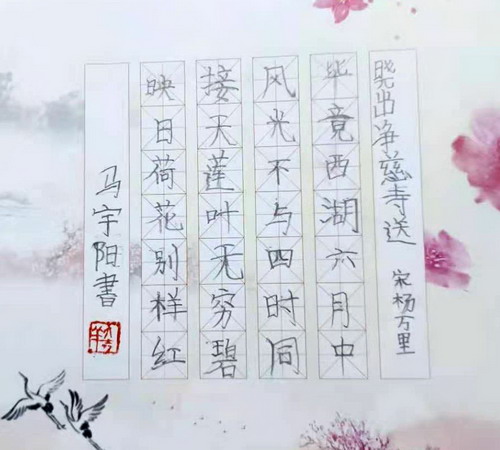 晓出净慈寺送 宋杨万里
毕竟西湖六月中
风光不与四时同
接天莲叶无穷碧
映日荷花别样红
马宇阳書